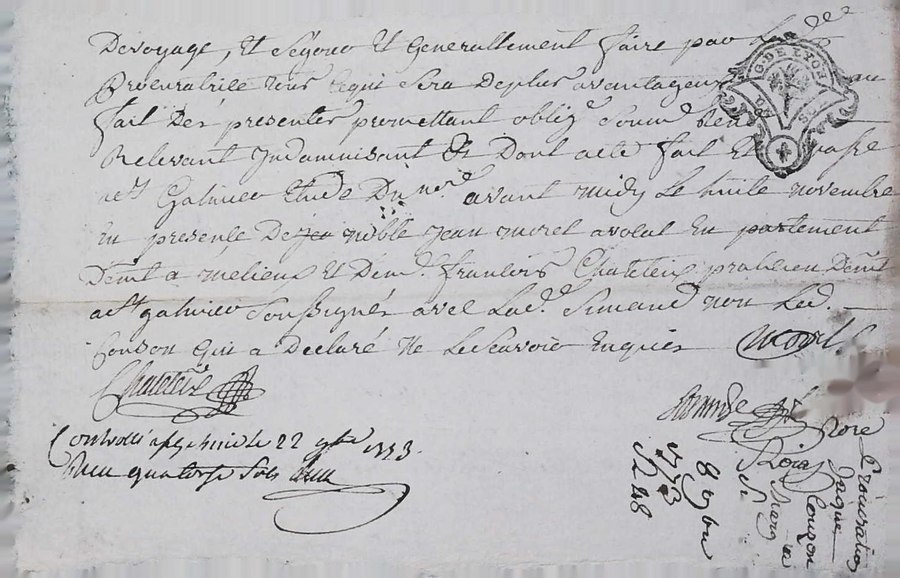 Devoyage, Et Séjour Et Generallement faire par Lad.e
Procuratrice tous Cequi Sera Deplus avantageux au
fait Dés presentes promettant oblig.t Soum.t Ren
Relevant Jndamnisant &t Dont acte fait Et passé
a St Galmier Etude Du n.re avant midy Le huit novembre
En presence De noble jean moret avocat En parlement
Dem.t a melieux Et De m.e francois Chateleis praticien Dem.t
a St galmier Soussignés avec Lad.e Simand non Led.
Couson qui a Declaré ne Le Scavoir Enquis
moret
Chateleis
Simande
Controllé a St galmier le 22 9bre 1773.
Reçu quatorze Sols
G. DE LYON
8 9bre
1773
Procuration
Jaques
Couzon
a